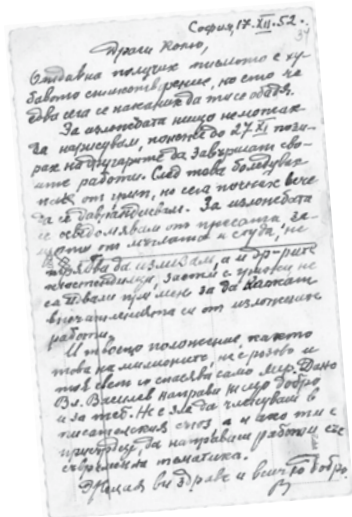 София, 17.XII.52.
37
Драги Колю,
Отдавна получих писмото с ху-
бавото стихотворение, но ето че
едва сега се наканих да ти се обадя.
За изложбата нищо не можах
да нарисувам, понеже до 27.XI пози-
рах на другарите да завършат сво-
ите работи. След това боледувах
пак от грип, но сега почнах вече
да се За изложбата
се осведомявам от пресата, за-
щото от мъглата и студа, не
трябва да излизам, а и др-рите
заети с не
са идвали при мен за да кажат
впечатленията си от изложените
работи.
И твоето положение, както
това на милионите, не е розово и
тоя свет го спасява само мир. Дано
Вл. Василев направи нещо добро
и за теб. Не е зле да членуваш в
писателския съюз а и ако ти е
присърце, да направиш работи със
съвременна тематика.
Желая ви здраве и всичко добро.